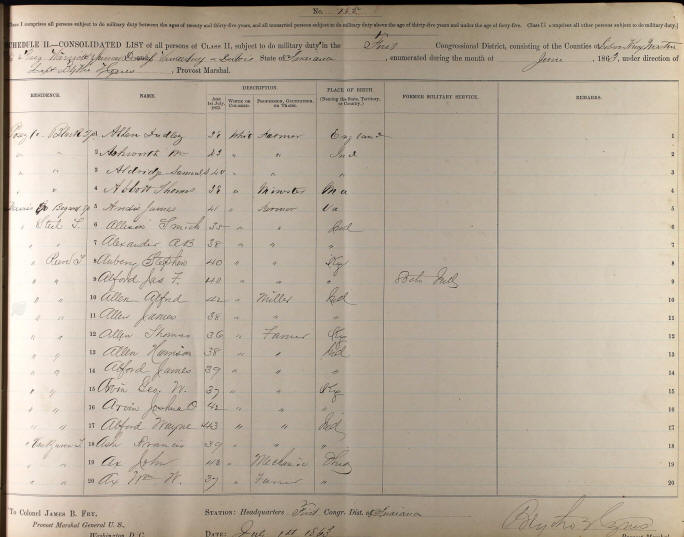 No. 155
Class I comprises all persons subject to do military duty between the ages of twenty and thirty-five years, and all unmarried persons subject to do military duty above the age of thirty-five years and under the age of forty-five. Class II comprises all other persons subject to do military duty.
SCHEDULE II.—CONSOLIDATED LIST of all persons of CLASS II, subject to do military duty in the First Congressional District, consisting of the Counties of Gibson Knox Martin
State of Indiana, enumerated during the month of June, 1863, under direction of
, Provost Marshal.
RESIDENCE. NAME. AGE 1st July, 1863. WHITE OR COLORED. DESCRIPTION. PROFESSION, OCCUPATION, OR TRADE. PLACE OF BIRTH. (Naming the State, Territory, or Country.) FORMER MILITARY SERVICE. REMARKS.
Posey Co. Black Tp 1 Allen Dudley 38 White Farmer England 1
" " 2 Ashworth Wm " " Ind 2
" " 3 Aldridge Samuel 40 " " " 3
" " 4 Abbott Thomas 38 " Minister 4
5 James 41 " Farmer Va 5
" Steel T. 6 Allison Smith 35 " " Ind 6
" " 7 Alexander A B 38 " " " 7
" Reeve T 8 Stephen 40 " " Ky 8
" " 9 Alford Jas F. 40 " " " 9
" " 10 Allen Alfred 42 " Miller Ind 10
" " 11 Allen James 38 " " " 11
" " 12 Allen Thomas 36 " Farmer Ky 12
" " 13 Allen Harrison 38 " " Ind 13
" " 14 Alford James 39 " " " 14
" " 15 Arvin Geo. W. 37 " " Ky 15
" " 16 Arvin Joshua O 42 " " " 16
" " 17 Alford Wayne 43 " " Ind 17
" 18 Ash Francis 39 " " " 18
" " 19 Ax John 43 " Mechanic Ohio 19
" " 20 Ax Wm W. 37 " Farmer " 20
To Colonel JAMES B. FRY,
Provost Marshal General U. S.,
Washington, D. C.
STATION: Headquarters First Congr. Dist. of Indiana
DATE: July 1st 1863
Provost Marshal.